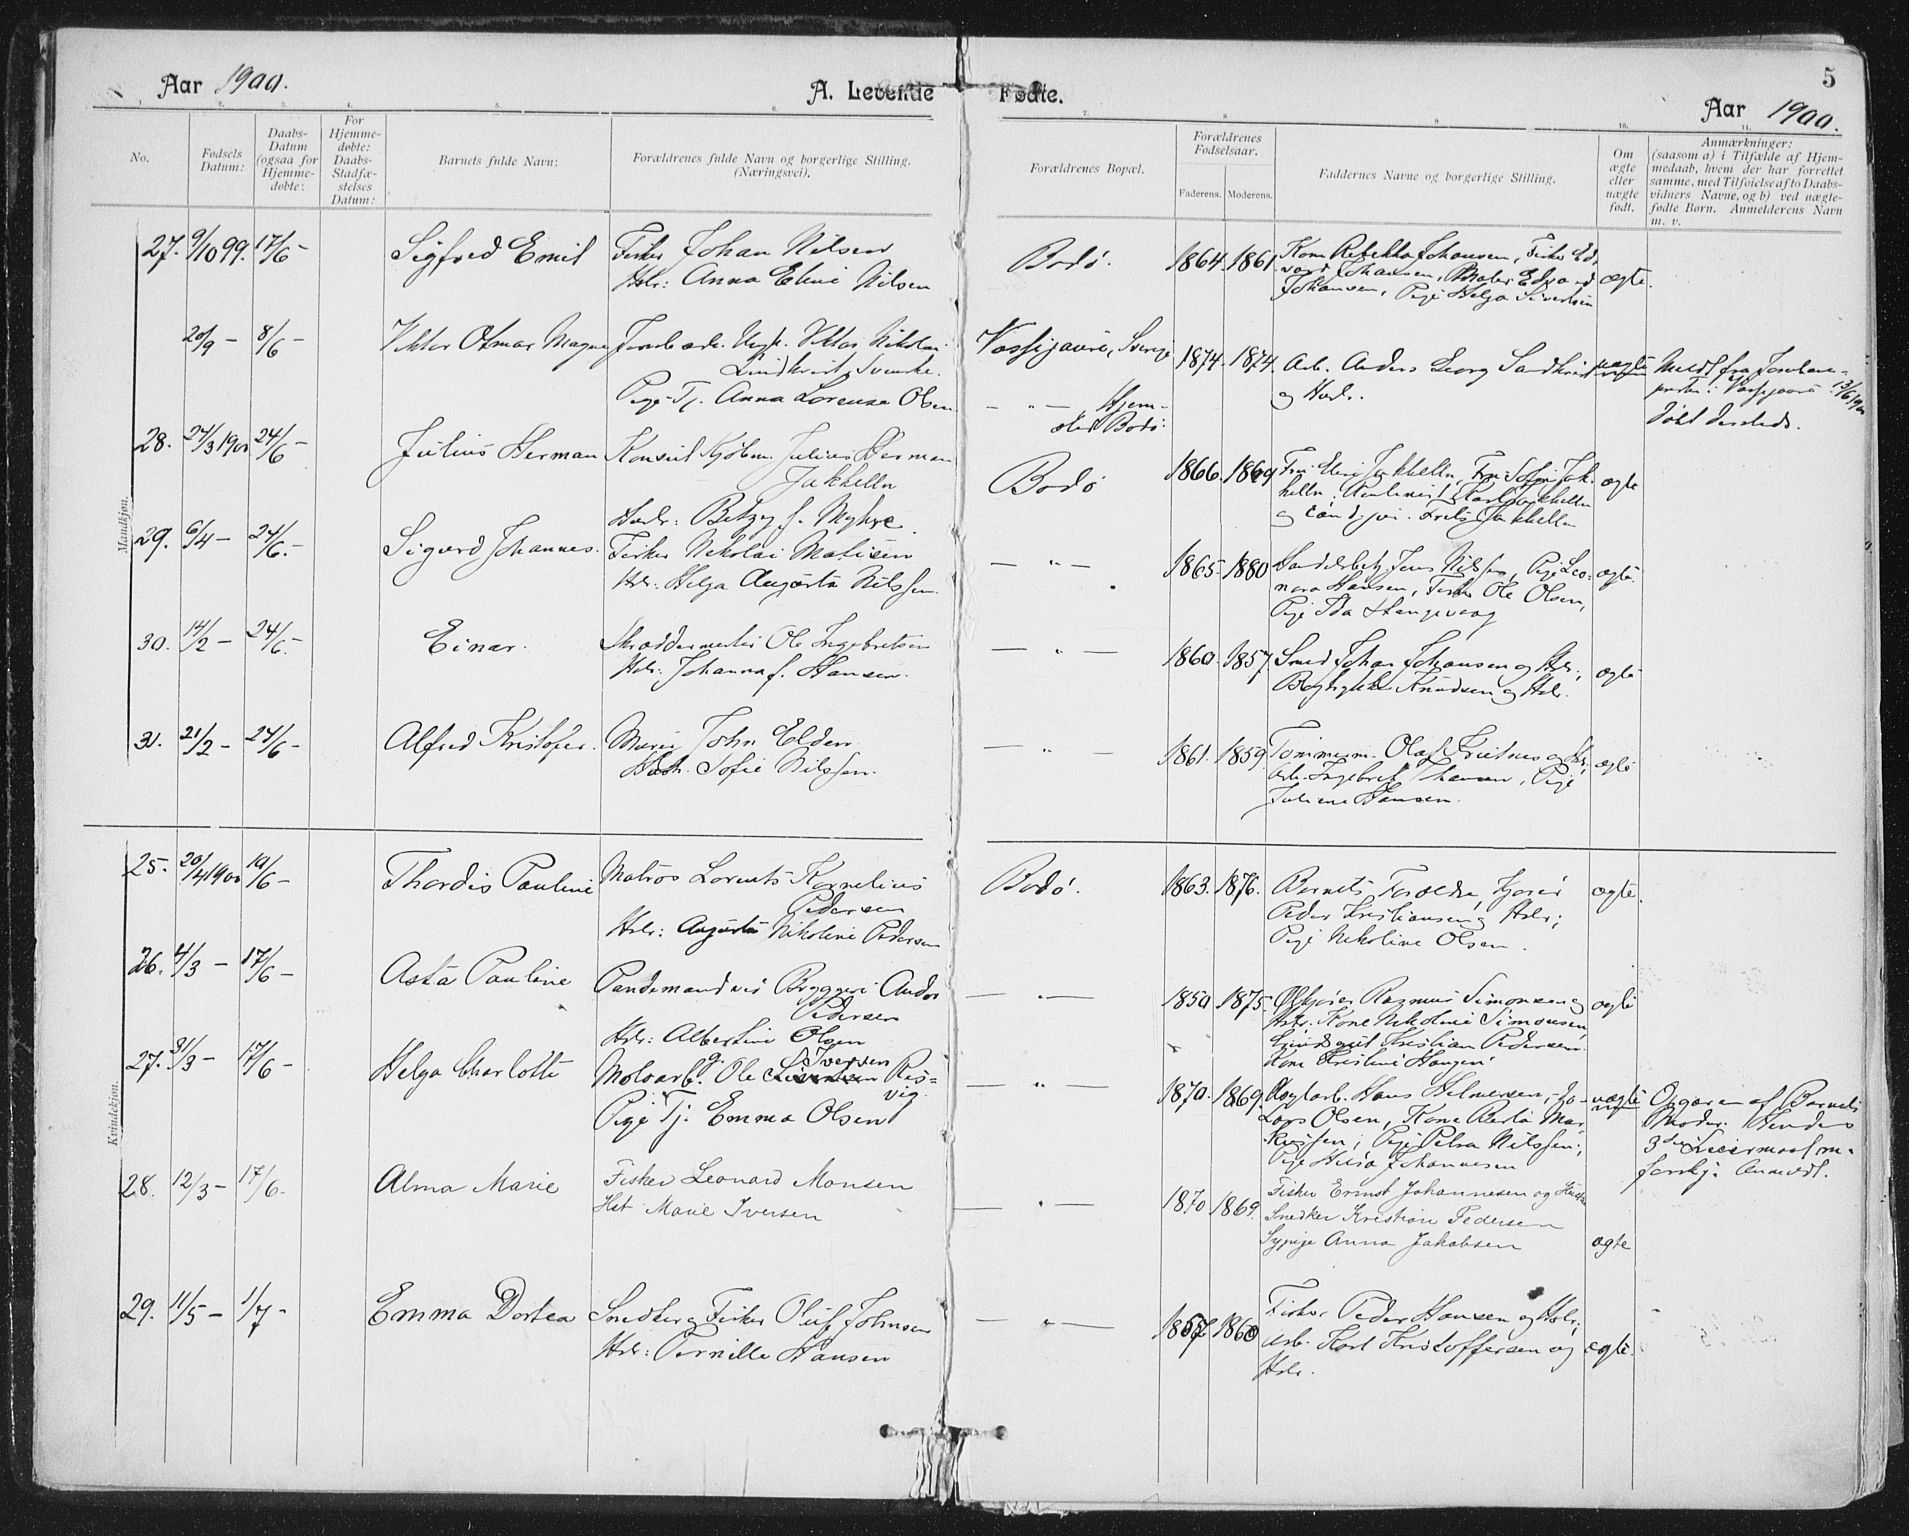 Aar 1900.
A. Levende
Fødte.
5
Aar 1900.
1. 2. 3. 4. 5. 6. 7. 8. 9. 10. 11.
No.
Fødsels Datum:
Daabs-Datum (ogsaa for Hjemme-døbte:
For Hjemme-døbte: Daabs-Stadfæ-stelses Datum:
Barnets fulde Navn:
Forældrenes fulde Navn og borgerlige Stilling. (Næringsvei).
Forældrenes Bopæl.
Forældrenes Fødselsaar.
Faderens. Moderens.
Faddernes Navne og borgerlige Stilling.
Om ægte eller uægte født.
Anmærkninger: (saasom a) i Tilfælde af Hjem-medaab, hvem der har forrettet samme, med Tilføielse af to Daabs-vidners Navne, og b) ved uægte-fødte Børn. Anmelderens Navn m. v.
Mandkjøn.
27. 9/10 99. 17/6 - Sigfred Emil Fisker Johan Nilsen
Hstr: Anna Eline Nilsen
Bodø. 1864. 1861. Kone Rebekka Johansen, Fisker Ed-
vard Johansen, Maler Edvard
Johansen, Pige Helga Sivertsen
ægte.
20/9 - 8/6 - Viktor Otmar Magny
Viktor Nikolai
Lindkvist, Svenske.
Pige Tj. Anna Lorense Olsen
Vassijaure, Sverige
- " - Hjem-
sted Bodø.
1874. 1874. Arb. Anders Georg Sandkvist
og Hstr.
uægte
Meldt fra
13/6 1900
Døbt dersteds.
28. 24/3 1900 24/6 - Julius Herman Konsul Kjøbm. Julius Herman
Jakhelln
Hstr: Betzy f. Myhre.
Bodø 1866. 1869 Fru Jakhelln, Fru Sofie Jak-
helln, Jakhelln
og Jakhelln
ægte
29. 6/4 - 24/6. - Sigurd Johannes. Fisker Nikolai Matisen
Hstr. Helga Augusta Nilssen.
- " - 1865. 1880 Jens Nilsen, Pige Leo-
nora Hansen, Fisker Ole Olsen,
Pige Ida Hangevaag
ægte.
30. 14/2 - 24/6. - Einar. Skræddermester Ole Ingebretsen
Hstr: Johanna f. Hansen.
- " - 1860. 1857. Smed Johan Johansen og Hstr.,
Knudsen og Hstr.
ægte
31. 21/2 - 24/6 - Alfred Kristofer. Murer John Elden
Hstr. Sofie Nilssen.
- " - 1861. 1859. Tømmerm. Olaf og Hstr,
Arb. Ingebret Hansen, Pige
Juliane Hansen.
ægte
Kvindekjøn.
25. 20/4 1900 10/6 - Thordis Pauline Matros Lorents Kornelius
Pedersen
Hstr: Augusta Nikoline Pedersen
Bodø. 1863. 1876. Barnets Forældre,
Peder Kristiansen og Hstr;
Pige Nikoline Olsen.
ægte.
26. 4/3 - 17/6 - Asta Pauline Bryggeri Andor
Pedersen
Hstr: Albertine Olsen
- " - 1850. 1875. Rasmus Simonsen og
Hstr. Kone Nikoline Simonsen,
Kristian Pedersen.
Kone Kristine Haugen
ægte
27. 31/3 - 17/6 - Helga Charlotte Moloarb. g. Ole Sivertsen Iversen Ris-
vig.
Pige Tj. Emma Olsen
- " - 1870. 1869. Hans Helmersen,
Lars Olsen, Kone Berta Mar-
kussen, Pige Petra Nilssen;
Pige Johannesen
uægte
Opgaven af Barnets
Moder. Hendes
3die Leiermaal m.
forskj. Anmeldt.
28. 12/3 - 17/6. Alma Marie Fisker Leonard Monsen
Hst Marie Iversen
- " - 1870 1869. Fisker Ernst Johannesen og
Snedker Kristian Pedersen
Sypige Anna Jakobsen
ægte
29. 11/5 - 1/7 - Emma Dortea Snedker og Fisker Oluf Johnsen
Hstr: Pernille Hansen
- " - 1857 1860 Fisker Peder Hansen og Hstr,
Arb. Karl Kristoffersen og
Hstr.
ægte.